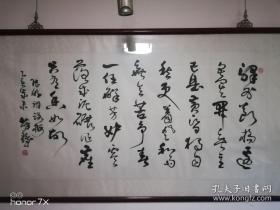 驿外断桥边
寂寞开无主
已是黄昏独自
愁更著风和雨
无意苦争春
一任群芳妒零
落成泥碾作尘
只有香如故
honor 7X
孔夫子旧书网